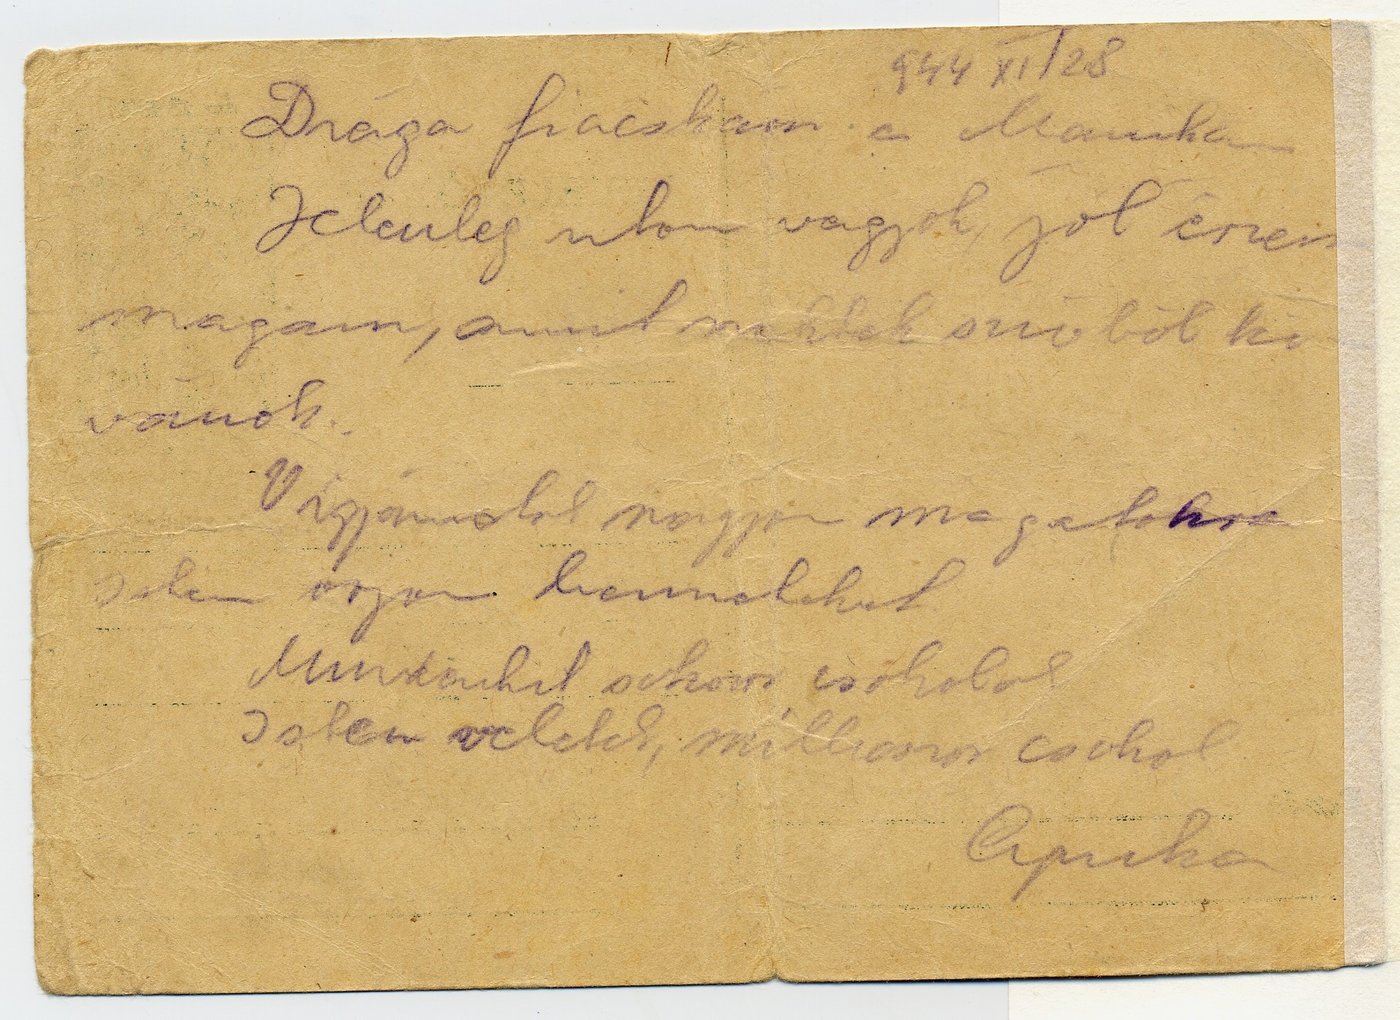 944 XI/28
Drága fiacskám a Mamika
Jelenleg uton vagyok, jól érzem
magam, amit nektek szivböl ki
vánok.
Vigyázzatok nagyon magatokra
Isten óvjon benneteket
Mindenkit sokszor csókolok
Isten veletek, milliószor csokol
Apuka